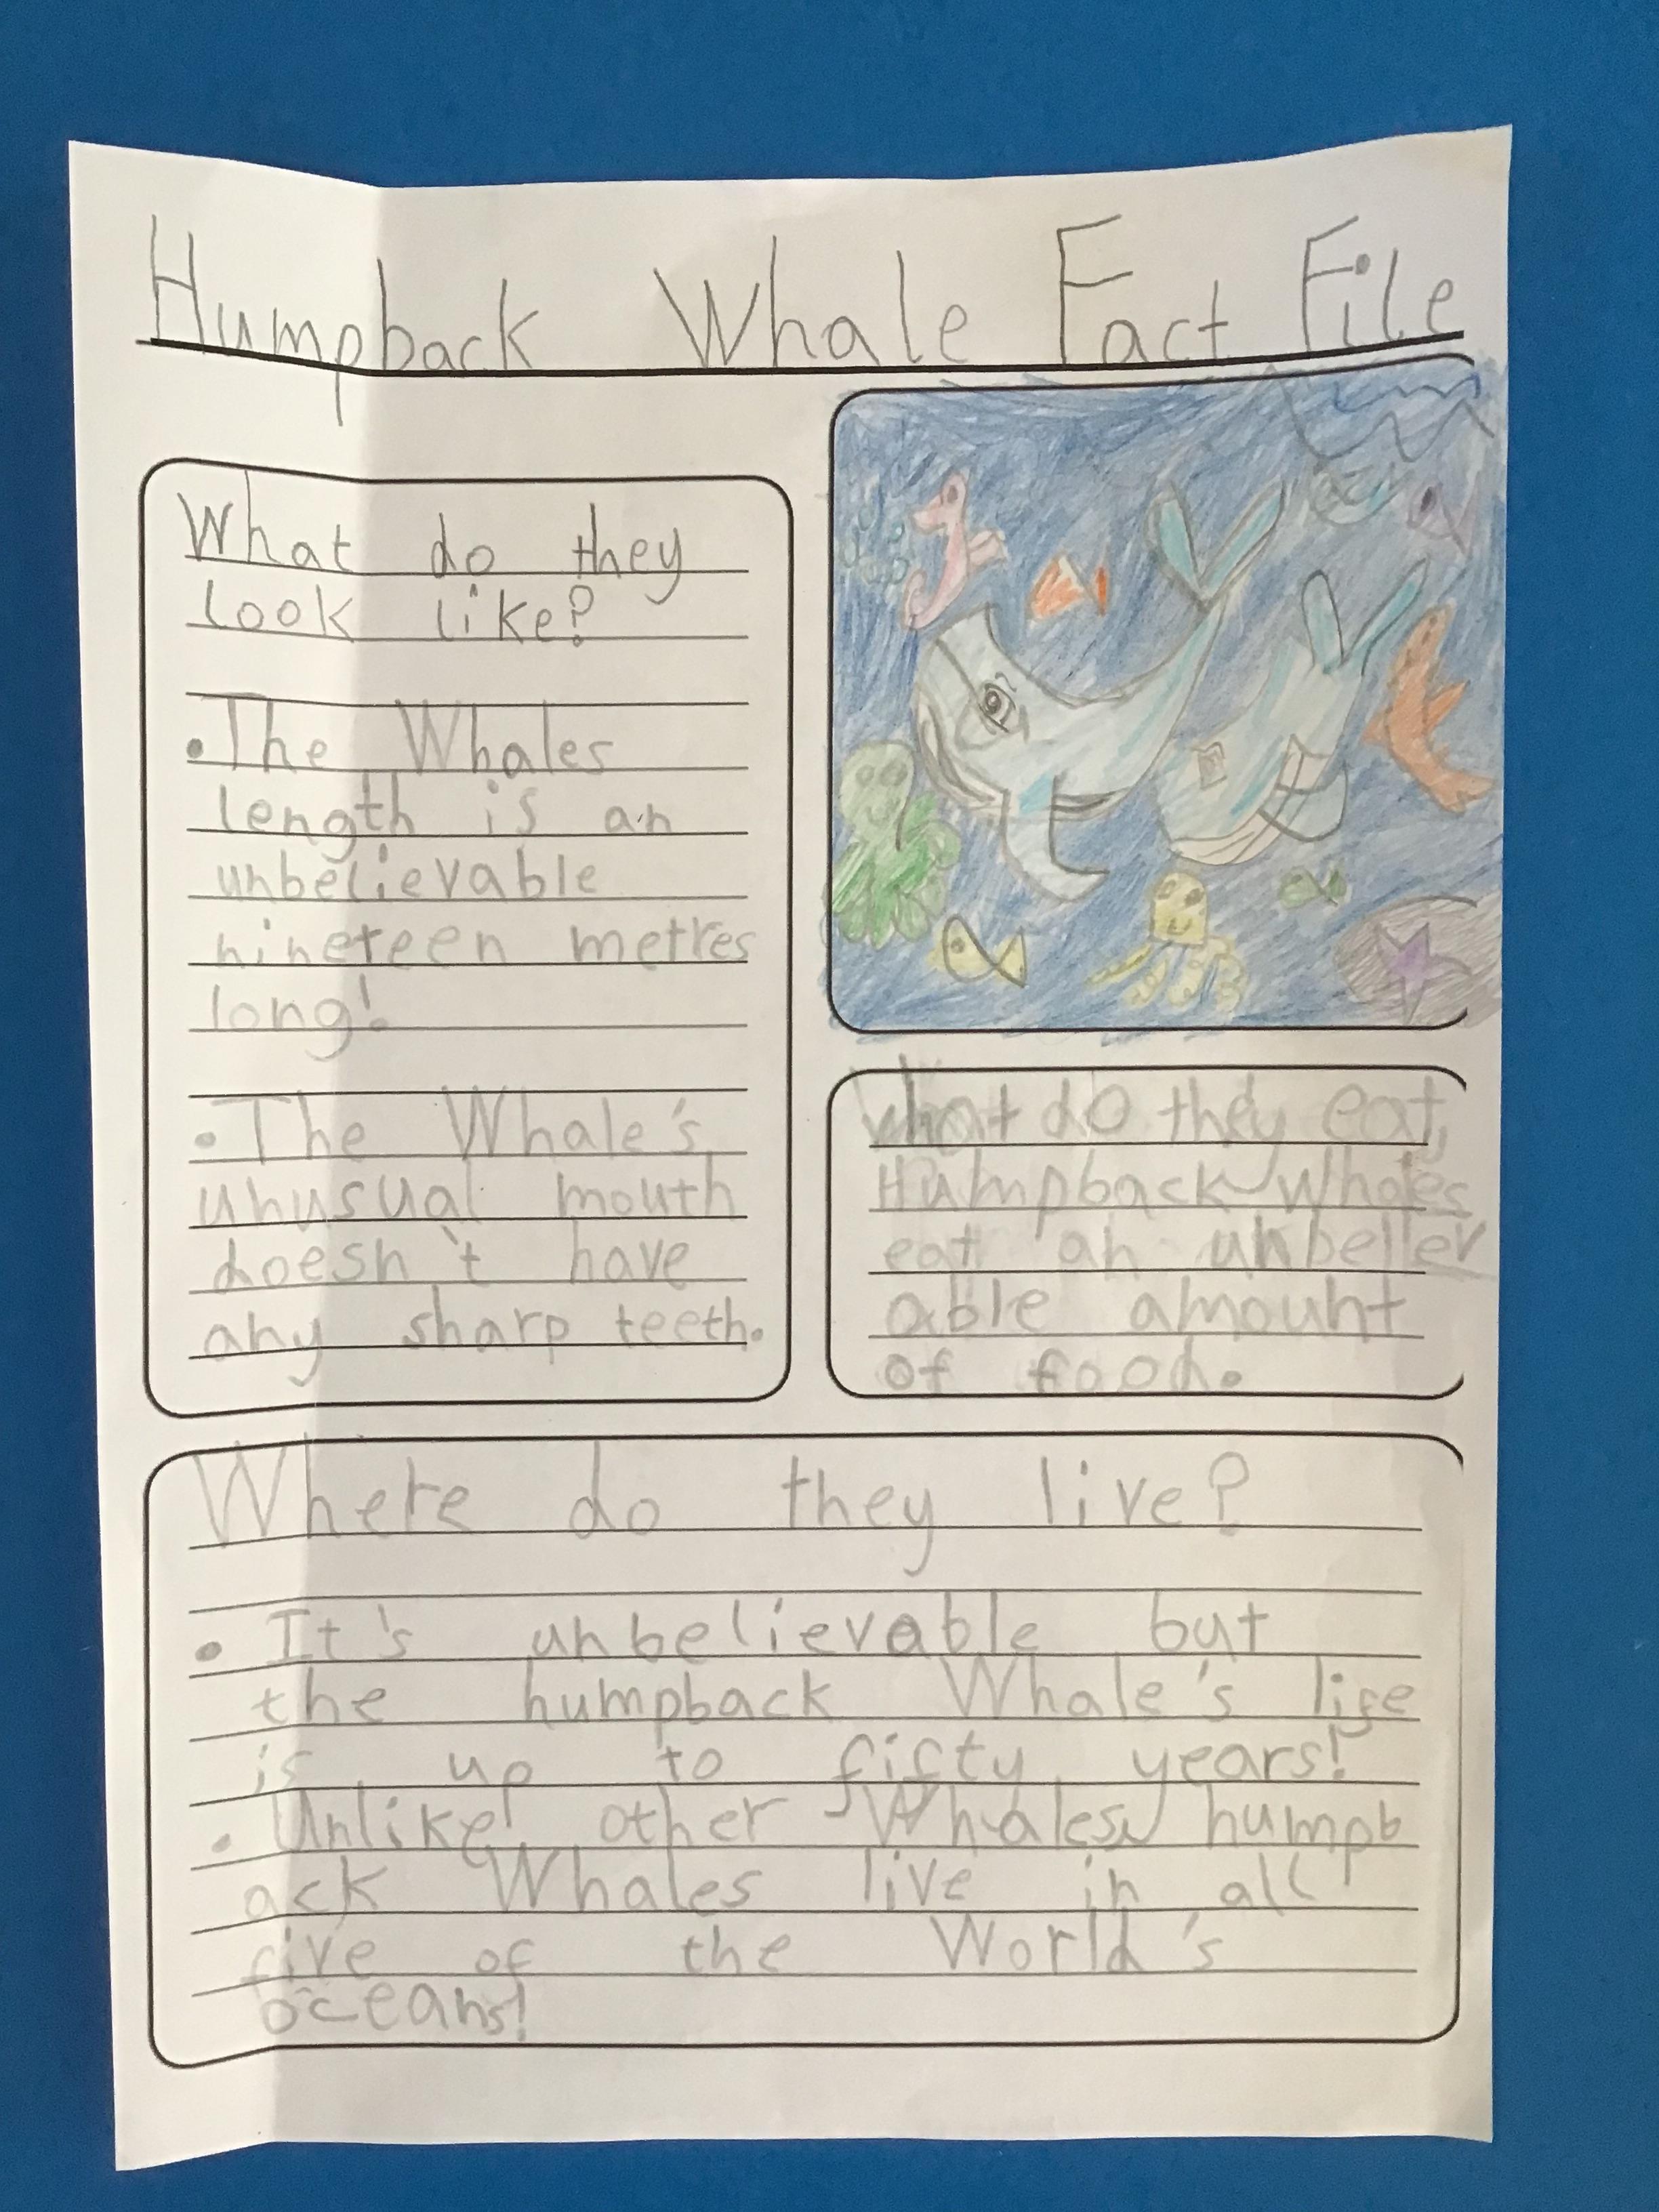 Humpback Whale Fact File
What do they
look like?
• The Whales
length is an
unbelievable
nineteen metres
long!
• The Whale's
unusual mouth
doesn't have
any sharp teeth.
What do they eat,
Humpback Whales
eat an unbeliev
able amount
of food.
Where do they live?
• It's unbelievable but
the humpback Whale's life
is up to fifty years!
• Unlike other Whales, humpb
ack Whales live in all
five of the World's
oceans!